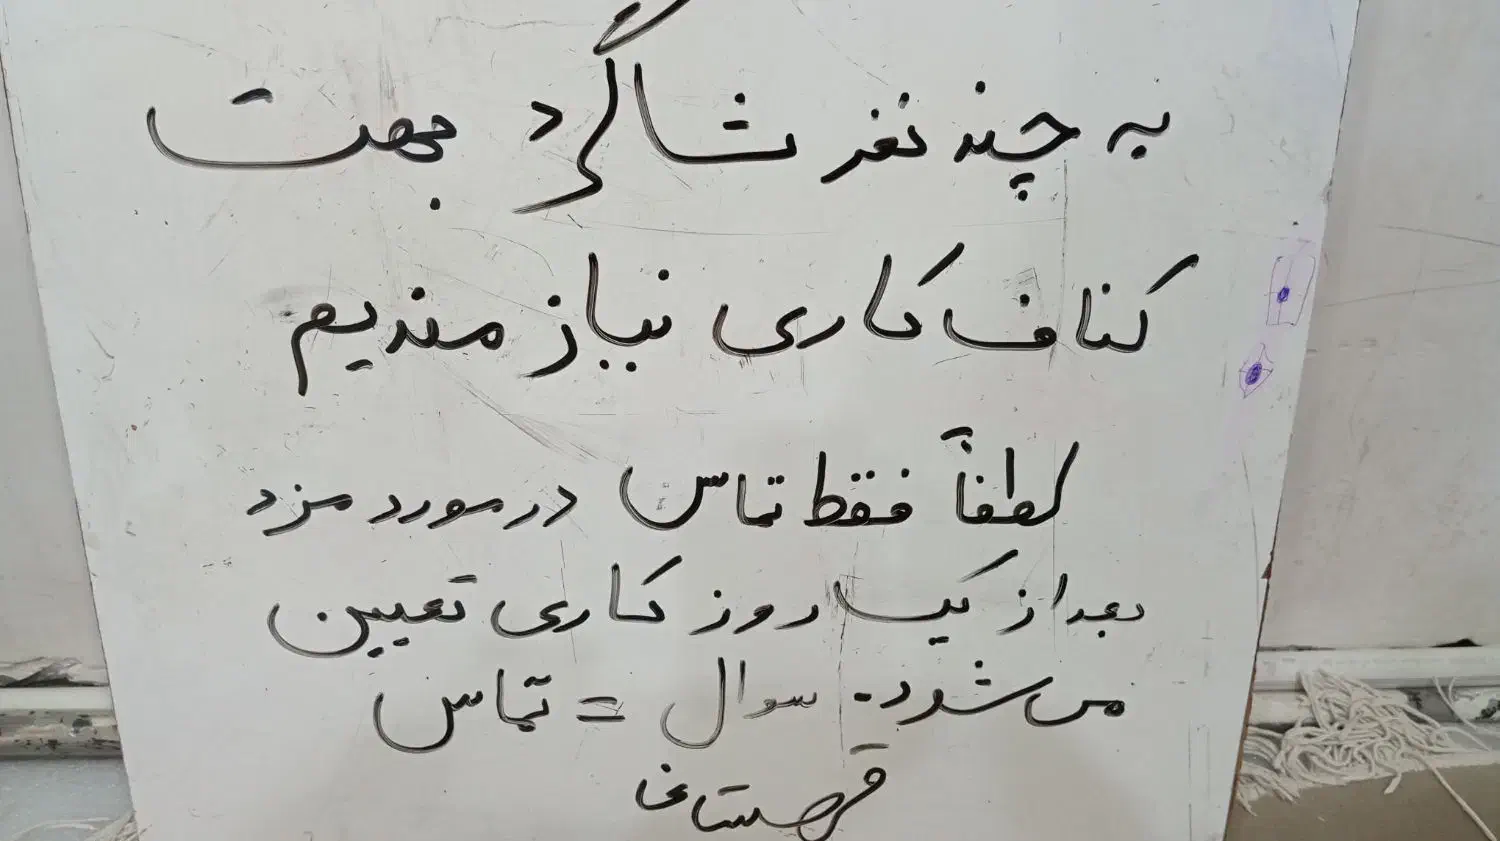 به چند نفر شاگرد جهت
کناف کاری نیاز مندیم
لطفاً فقط تماس در مورد مزد
بعد از یک روز کاری تعیین
می شود. سوال = تماس
قهستانی